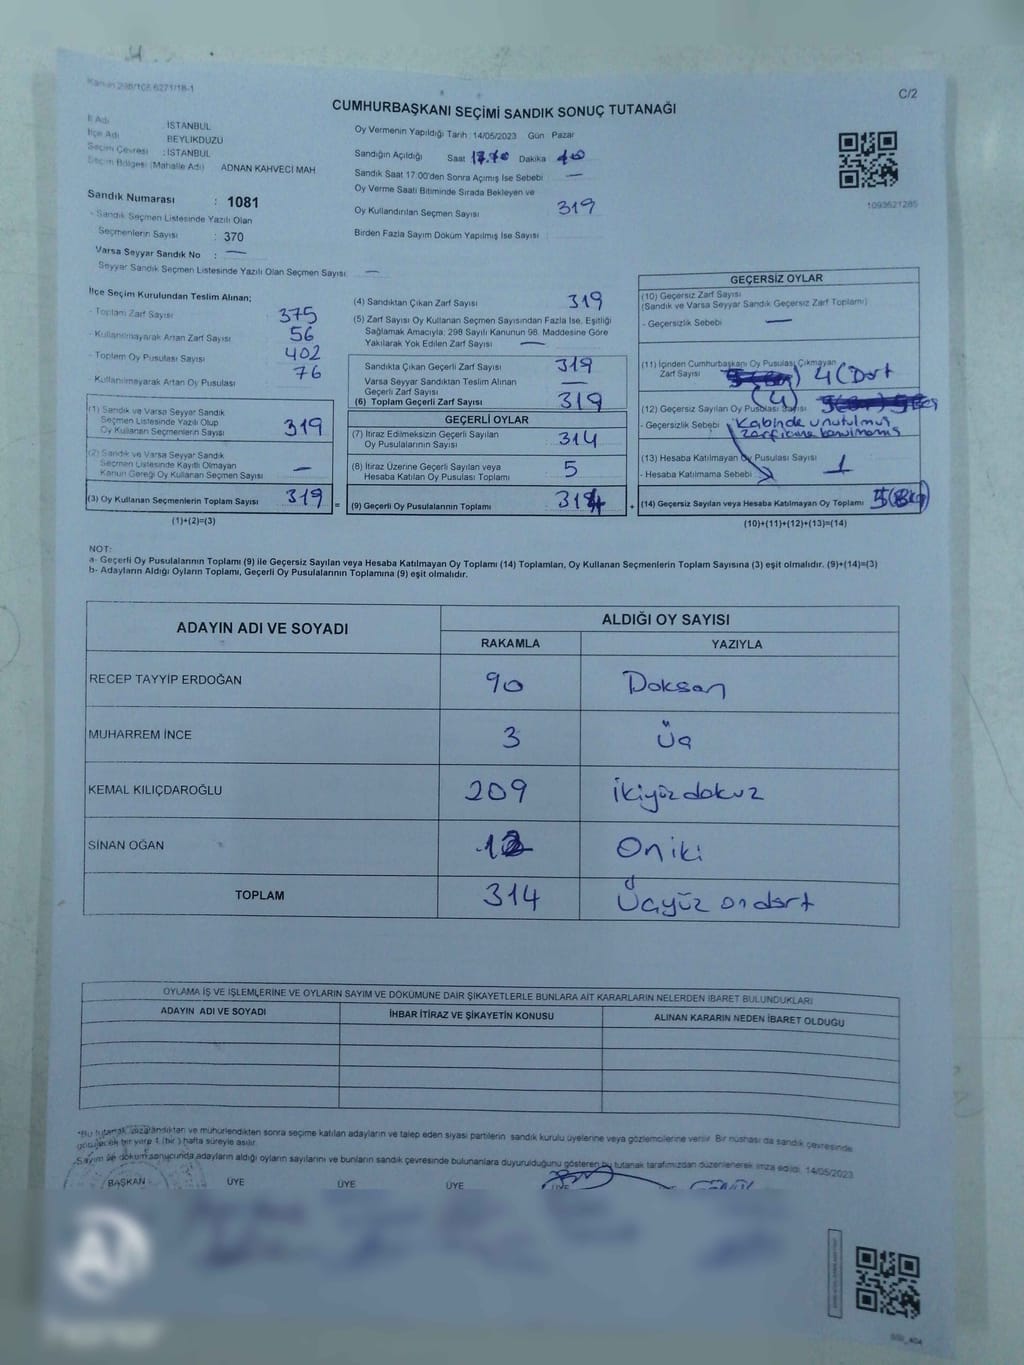 C/2
CUMHURBAŞKANI SEÇİMİ SANDIK SONUÇ TUTANAĞI
İl Adı : İSTANBUL
İlçe Adı BEYLİKDÜZÜ
Seçim Çevresi : İSTANBUL
Seçim Bölgesi (Mahalle Adı) ADNAN KAHVECİ MAH
Sandık Numarası : 1081
- Sandık Seçmen Listesinde Yazılı Olan
Seçmenlerin Sayısı : 370
Varsa Seyyar Sandık No : —
Seyyar Sandık Seçmen Listesinde Yazılı Olan Seçmen Sayısı —
Oy Vermenin Yapıldığı Tarih 14/05/2023 Gün Pazar
Sandığın Açıldığı Saat Dakika 40
Sandık Saat 17:00'den Sonra Açımış İse Sebebi —
Oy Verme Saati Bitiminde Sırada Bekleyen ve
Oy Kullandırılan Seçmen Sayısı 319
Birden Fazla Sayım Döküm Yapılmış İse Sayısı
1093621285
İlçe Seçim Kurulundan Teslim Alınan;
- Toplam Zarf Sayısı 375
- Kullanılmayarak Artan Zarf Sayısı 56
- Toplam Oy Pusulası Sayısı 402
- Kullanılmayarak Artan Oy Pusulası 76
(1) Sandık ve Varsa Seyyar Sandık
Seçmen Listesinde Yazılı Olup
Oy Kullanan Seçmenlerin Sayısı 319
(2) Sandık ve Varsa Seyyar Sandık
Seçmen Listesinde Kayıtlı Olmayan
Kanun Gereği Oy Kullanan Seçmen Sayısı —
(3) Oy Kullanan Seçmenlerin Toplam Sayısı 319 =
(1)+(2)=(3)
(4) Sandıktan Çıkan Zarf Sayısı 319
(5) Zarf Sayısı Oy Kullanan Seçmen Sayısından Fazla İse, Eşitliği
Sağlamak Amacıyla; 298 Sayılı Kanunun 98. Maddesine Göre
Yakılarak Yok Edilen Zarf Sayısı —
Sandıkta Çıkan Geçerli Zarf Sayısı 319
Varsa Seyyar Sandıktan Teslim Alınan
Geçerli Zarf Sayısı —
(6) Toplam Geçerli Zarf Sayısı 319
GEÇERLİ OYLAR
(7) İtiraz Edilmeksizin Geçerli Sayılan
Oy Pusulalarının Sayısı 314
(8) İtiraz Üzerine Geçerli Sayılan veya
Hesaba Katılan Oy Pusulaları Toplamı 5
(9) Geçerli Oy Pusulalarının Toplamı 314 +
GEÇERSİZ OYLAR
(10) Geçersiz Zarf Sayısı
(Sandık ve Varsa Seyyar Sandık Geçersiz Zarf Toplamı)
- Geçersizlik Sebebi —
(11) İçinden Cumhurbaşkanı Oy Pusulası Çıkmayan
Zarf Sayısı 4 (Dört
(4)
(12) Geçersiz Sayılan Oy Pusulası Sayısı
- Geçersizlik Sebebi Kabinde unutulmuş
zarfıcine
(13) Hesaba Katılmayan Oy Pusulası Sayısı 1
- Hesaba Katılmama Sebebi
(14) Geçersiz Sayılan veya Hesaba Katılmayan Oy Toplamı 5
(10)+(11)+(12)+(13)=(14)
NOT:
a- Geçerli Oy Pusulalarının Toplamı (9) ile Geçersiz Sayılan veya Hesaba Katılmayan Oy Toplamı (14) Toplamları, Oy Kullanan Seçmenlerin Toplam Sayısına (3) eşit olmalıdır. (9)+(14)=(3)
b- Adayların Aldığı Oyların Toplamı, Geçerli Oy Pusulalarının Toplamına (9) eşit olmalıdır.
ADAYIN ADI VE SOYADI ALDIĞI OY SAYISI
RAKAMLA YAZIYLA
RECEP TAYYİP ERDOĞAN 90 Doksan
MUHARREM İNCE 3 Üç
KEMAL KILIÇDAROĞLU 209 ikiyüzdokuz
SİNAN OĞAN 12 Oniki
TOPLAM 314 Üçyüz ondört
OYLAMA İŞ VE İŞLEMLERİNE VE OYLARIN SAYIM VE DÖKÜMÜNE DAİR ŞİKAYETLERLE BUNLARA AİT KARARLARIN NELERDEN İBARET BULUNDUKLARI
ADAYIN ADI VE SOYADI İHBAR İTİRAZ VE ŞİKAYETİN KONUSU ALINAN KARARIN NEDEN İBARET OLDUĞU
*Bu tutanak imzalandıktan ve mühürlendikten sonra seçime katılan adayların ve talep eden siyasi partilerin sandık kurulu üyelerine veya gözlemcilerine verilir. Bir nüshası da sandık çevresinde
görülecek bir yere 1 (bir) hafta süreyle asılır.
Sayım ve döküm sonucunda adayların aldığı oyların sayılarını ve bunların sandık çevresinde bulunanlara duyurulduğunu gösteren bu tutanak tarafımızdan düzenlenerek imza edildi. 14/05/2023
BAŞKAN ÜYE ÜYE ÜYE ÜYE